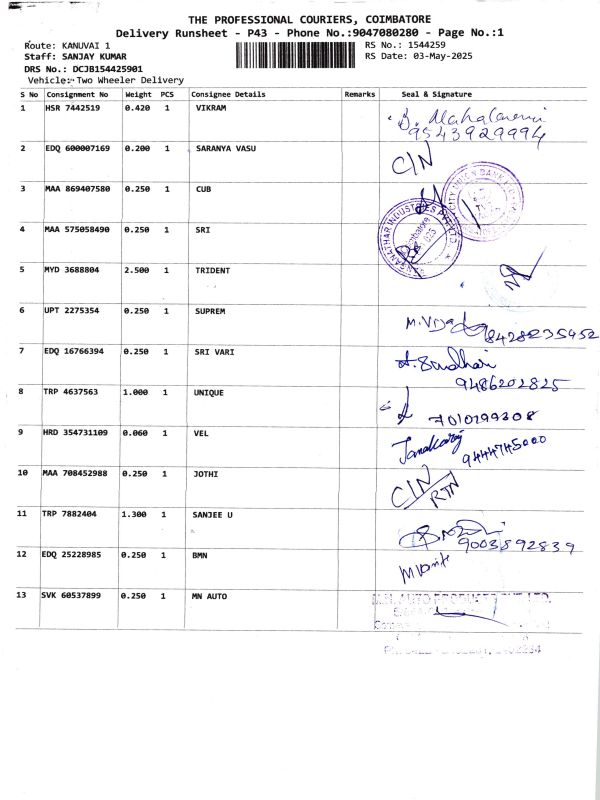 THE PROFESSIONAL COURIERS, COIMBATORE
Delivery Runsheet - P43 - Phone No.:9047080280 - Page No.:1
Route: KANUVAI 1
RS No.: 1544259
Staff: SANJAY KUMAR
RS Date: 03-May-2025
DRS No.: DCJB154425901
Vehicle: Two Wheeler Delivery
S No Consignment No Weight PCS Consignee Details Remarks Seal & Signature
1 HSR 7442519 0.420 1 VIKRAM
9543929994
2 EDQ 600007169 0.200 1 SARANYA VASU C/N
3 MAA 869407580 0.250 1 CUB
CITY UNION BANK
4 MAA 575058490 0.250 1 SRI
5 MYD 3688804 2.500 1 TRIDENT
6 UPT 2275354 0.250 1 SUPREM
8428235952
7 EDQ 16766394 0.250 1 SRI VARI
9486202825
8 TRP 4637563 1.000 1 UNIQUE
7010299308
9 HRD 354731109 0.060 1 VEL
9444745000
10 MAA 708452988 0.250 1 JOTHI C/N RTN
11 TRP 7882404 1.300 1 SANJEE U
9003892839
12 EDQ 25228985 0.250 1 BMN
13 SVK 60537899 0.250 1 MN AUTO